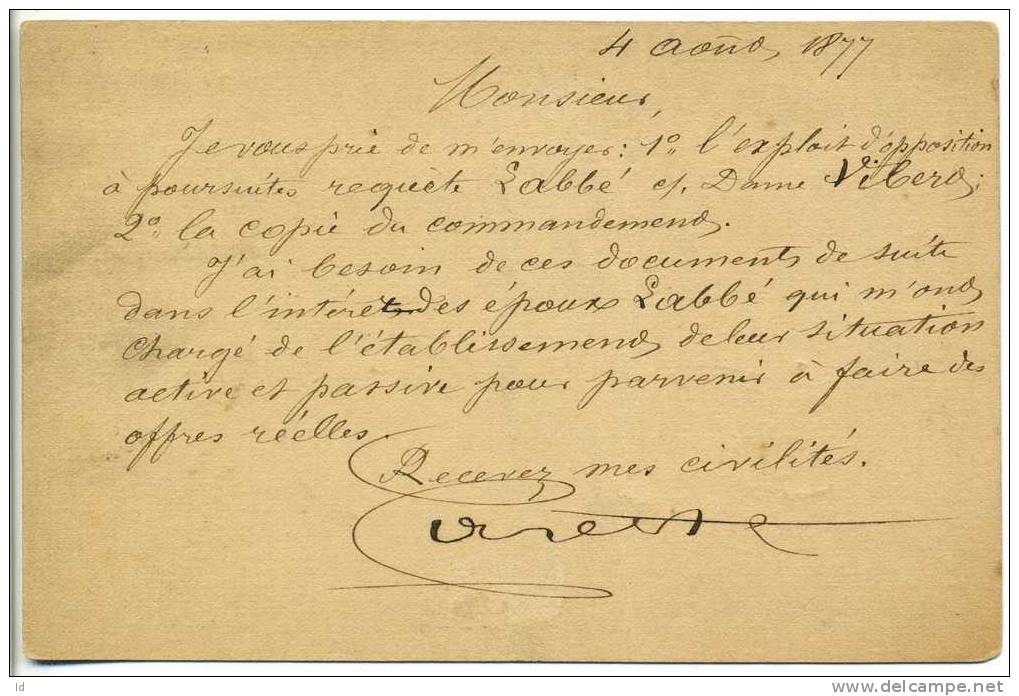 4 Août 1877
Monsieur,
Je vous prie de m'envoyer: 1° l'exploit d'opposition
à poursuites requête Labbé c/ Dame Vibert;
2° la copie du commandement.
J'ai besoin de ces documents de suite
dans l'intérêt des époux Labbé qui m'ont
chargé de l'établissement de leur situation
active et passive pour parvenir à faire des
offres réelles.
Recevez mes civilités.
ld
delcampe.net